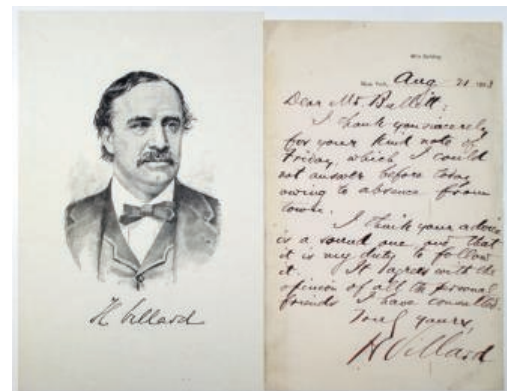 H Villard
Mills Building
New York, Aug. 21
Dear Mr. Bullitt:
I thank you sincerely
for your kind note of
Friday, which I could
not answer before today
owing to absence from
town.
I think your advice
is a sound one and that
it is my duty to follow
it. It agrees with the
opinion of all the personal
friends I have consulted.
yours,
H Villard